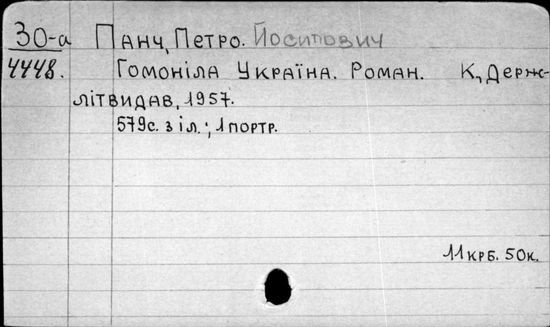 30-а Панч, Петро. Йосипович
4448. Гомоніла Україна. Роман. К., Держ-
літвидав, 1957.
579с. з іл.; 1 портр.
11 крб. 50к.